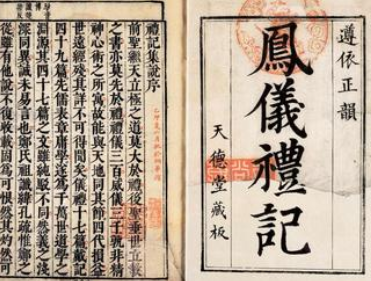 遵依正韻
鳳儀禮記
天德堂藏板
禮記集說序
前聖繼天立極之道莫大於禮後聖垂世立教
之書亦莫先於禮禮儀三百威儀三千孰非精
神心術之所寓故能與天地同其節四代損益
世遠經殘其詳不可得聞矣儀禮十七篇戴記
四十九篇先儒表章庸學遂為千萬世道學之
淵源其四十七篇之文雖純駁不同然義之淺
深同異誠未易言也鄭氏祖讖緯孔疏惟鄭之
從雖有他說不復收載固為可恨然其灼然可